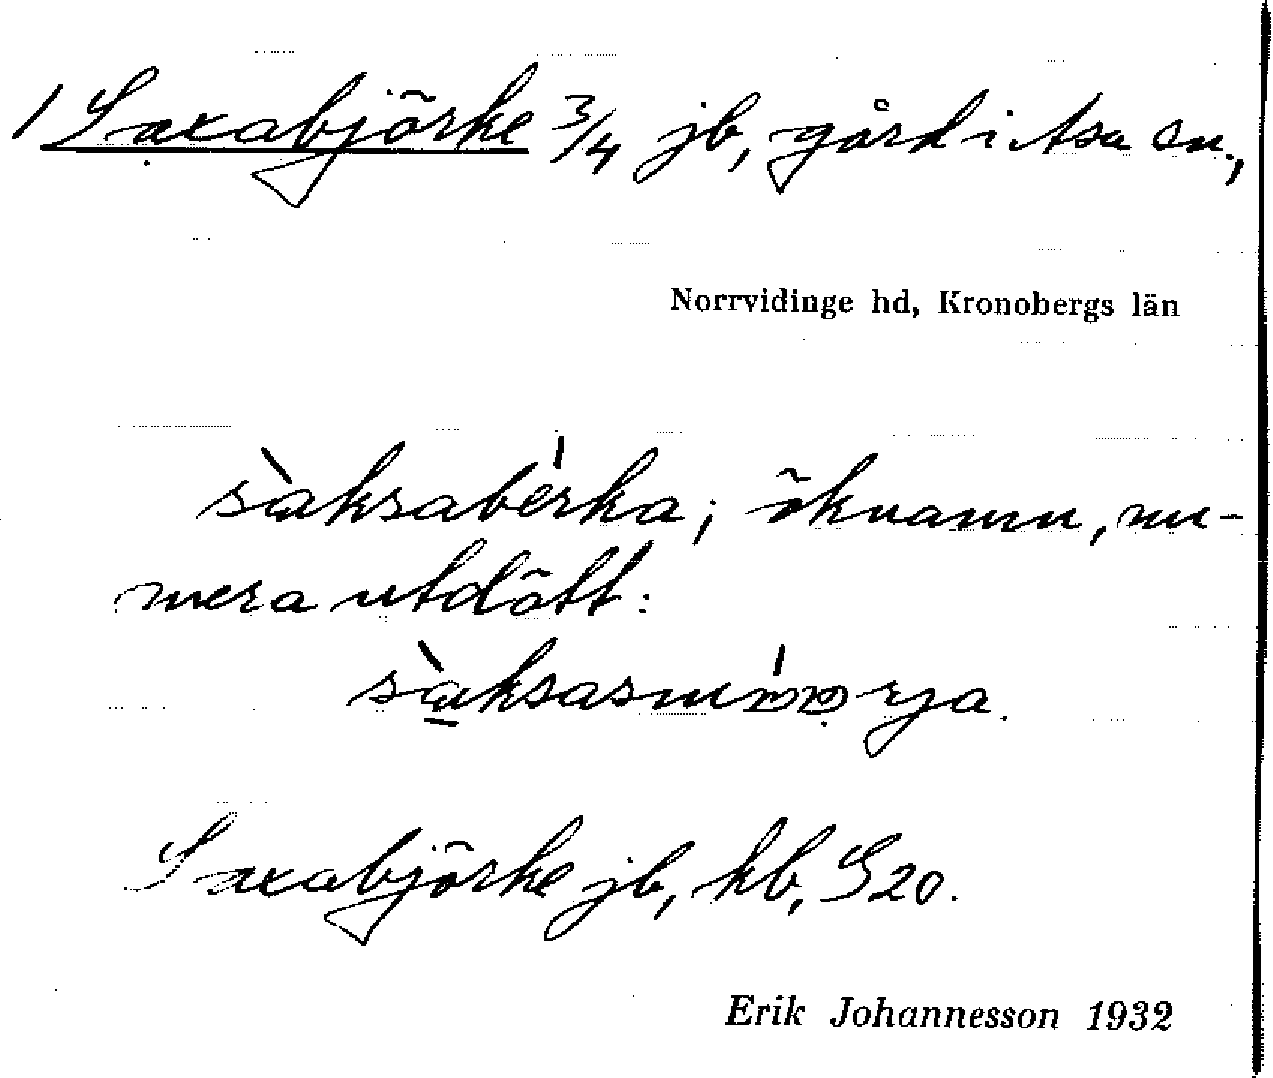 1 Saxabjörke 3/4 jb, gård i Asa sn.,
Norrvidinge hd, Kronobergs län
sàksabérka; öknamn, nu-
mera utdött:
Saxabjörke jb, kb, G20.
Erik Johannesson 1932